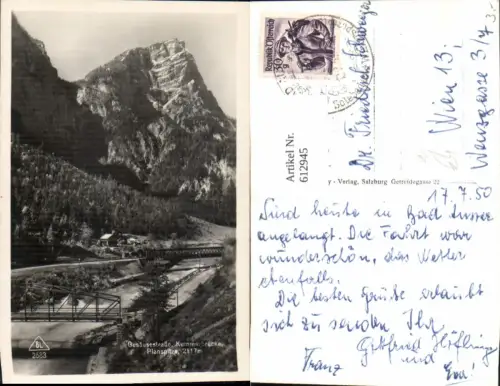 Gesäusestraße, Kummerbrücke,
Planspitze, 2117m
2683
Republik Österreich
30
Artikel Nr.
612945
Dr. Friedrich
Wien 13,
3/43
y - Verlag, Salzburg Getreidegasse 22
17.7.50
Sind heute in Bad Aussee
angelangt. Die Fahrt war
wunderschön, das Wetter
ebenfalls.
Die besten Grüße erlaubt
sich zu senden Ihr
Gottfried
und
Franz
Eva!